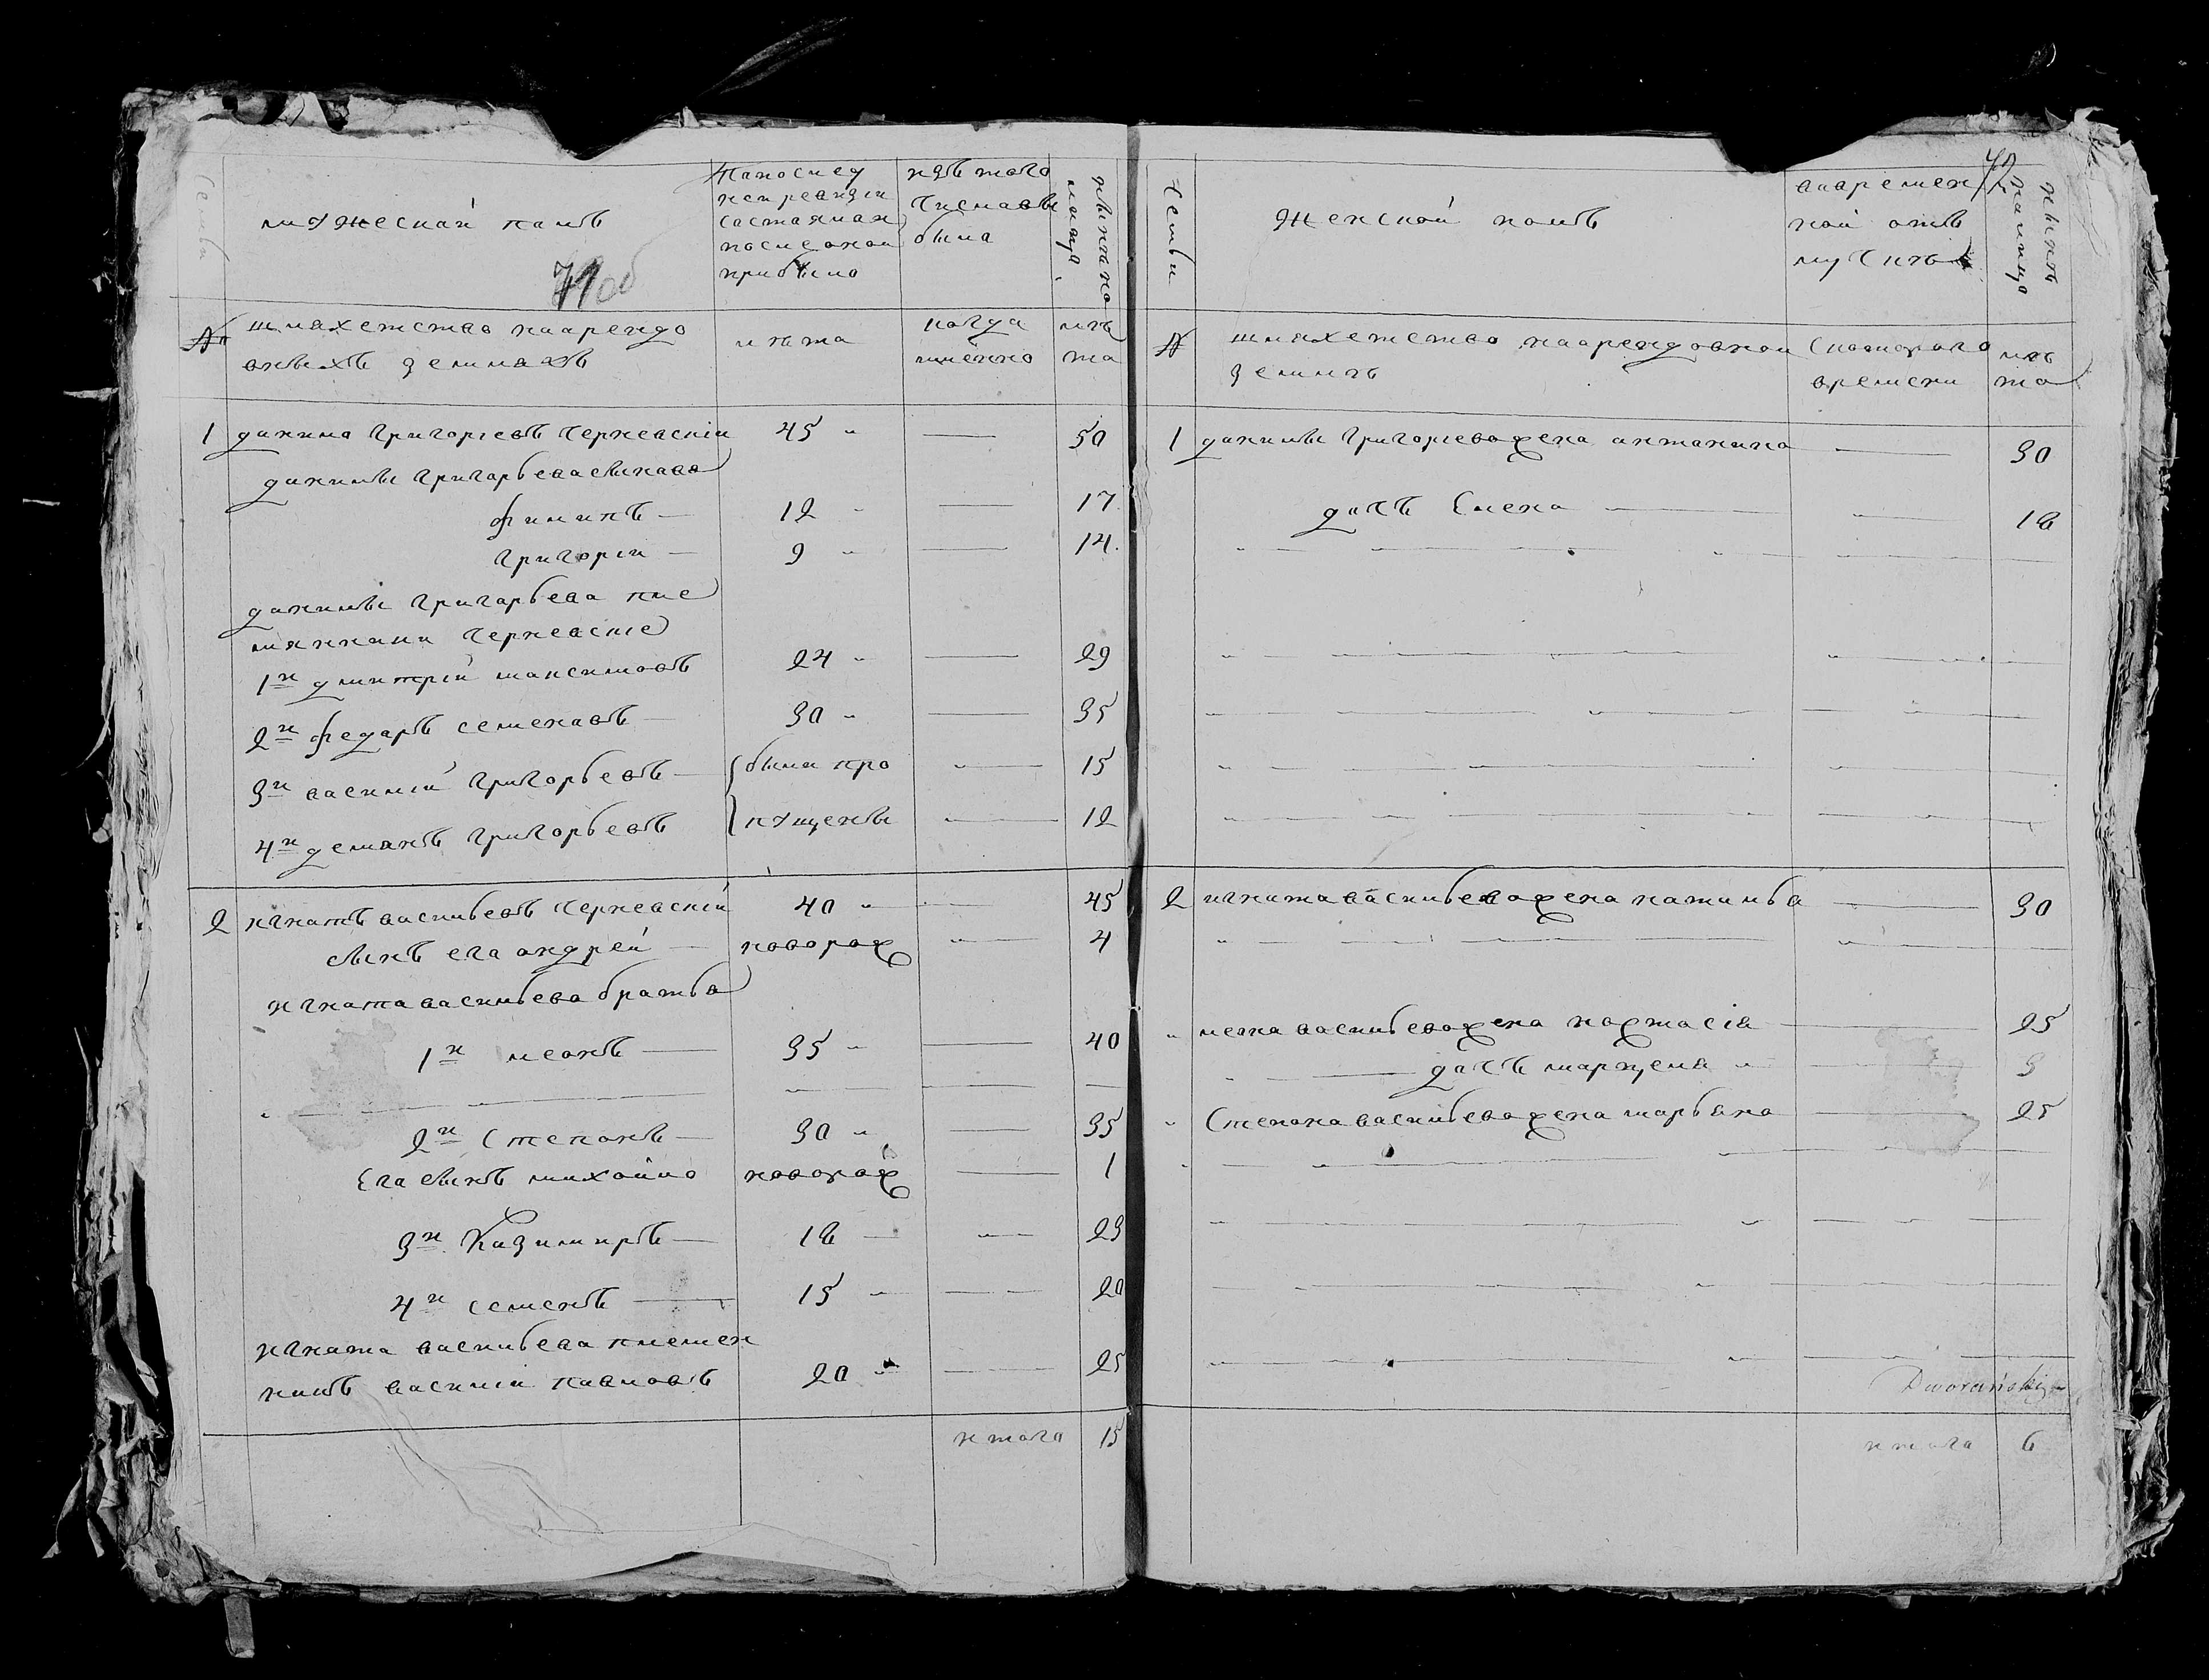 Семьи
мужескай полъ
71 об
Попослед
неи ревизіи
састаяшая
послеонои
прибыло
изъ того
числавы
была
ныне на
лицо
№
шляхетство наарендо
вныхъ землахъ
лета
когда
имённо
ле
та
1 данила григоріевъ Черневскіи 45 " — 50
данилы григорьева сынава
филипъ — 12 " — 17
григоріи — 9 " — 14.
данилы григарьева пле
мянники Черневскіе
1й дмитріи максимовъ 24 " — 29
2й федаръ семенавъ 30 " — 35
3й василій григорьевъ — были про " — 15
4й демянъ григорьевъ пущены — 12
2 игнатъ васильевъ Черневскій 40 " — 45
сынъ ега андрей — новорож " — 4
игната васильева братья
1й леонъ — 35 " — 40
2й Степанъ — 30 " — 35
Ега сынъ михайло новорож — 1
3й Казимиръ — 18 — 23
4й семенъ — 15 " — 20
игната васильева племен
никъ василіи павловъ 20 " — 25
итого 15
72
Семьи
Женской полъ
вовремен
ной отл
учкъ
ныне
налицо
№
шляхетство наарендовнои
земле
Скоторого
времени
ле
та
1 данилы григоріева жена антанина — 30
дочь Елена — — 18
2 игната васильева жена наталья — 30
" леона васильева жена настасія — 25
" — дочь марцеля " — 3
" Степана васильева жена марьяна — 25
Dworański
итога 6